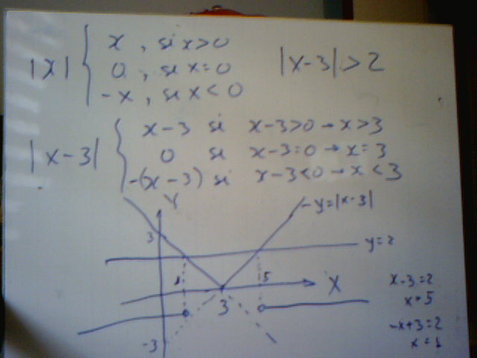 |x| { x , si x>0
0 , si x=0
-x , si x<0
|x-3|>2
|x-3| { x-3 si x-3>0 → x>3
0 si x-3=0 → x=3
-(x-3) si x-3<0 → x<3
Y
y=|x-3|
3
y=2
1
5
X
3
-3
x-3=2
x=5
-x+3=2
x=1